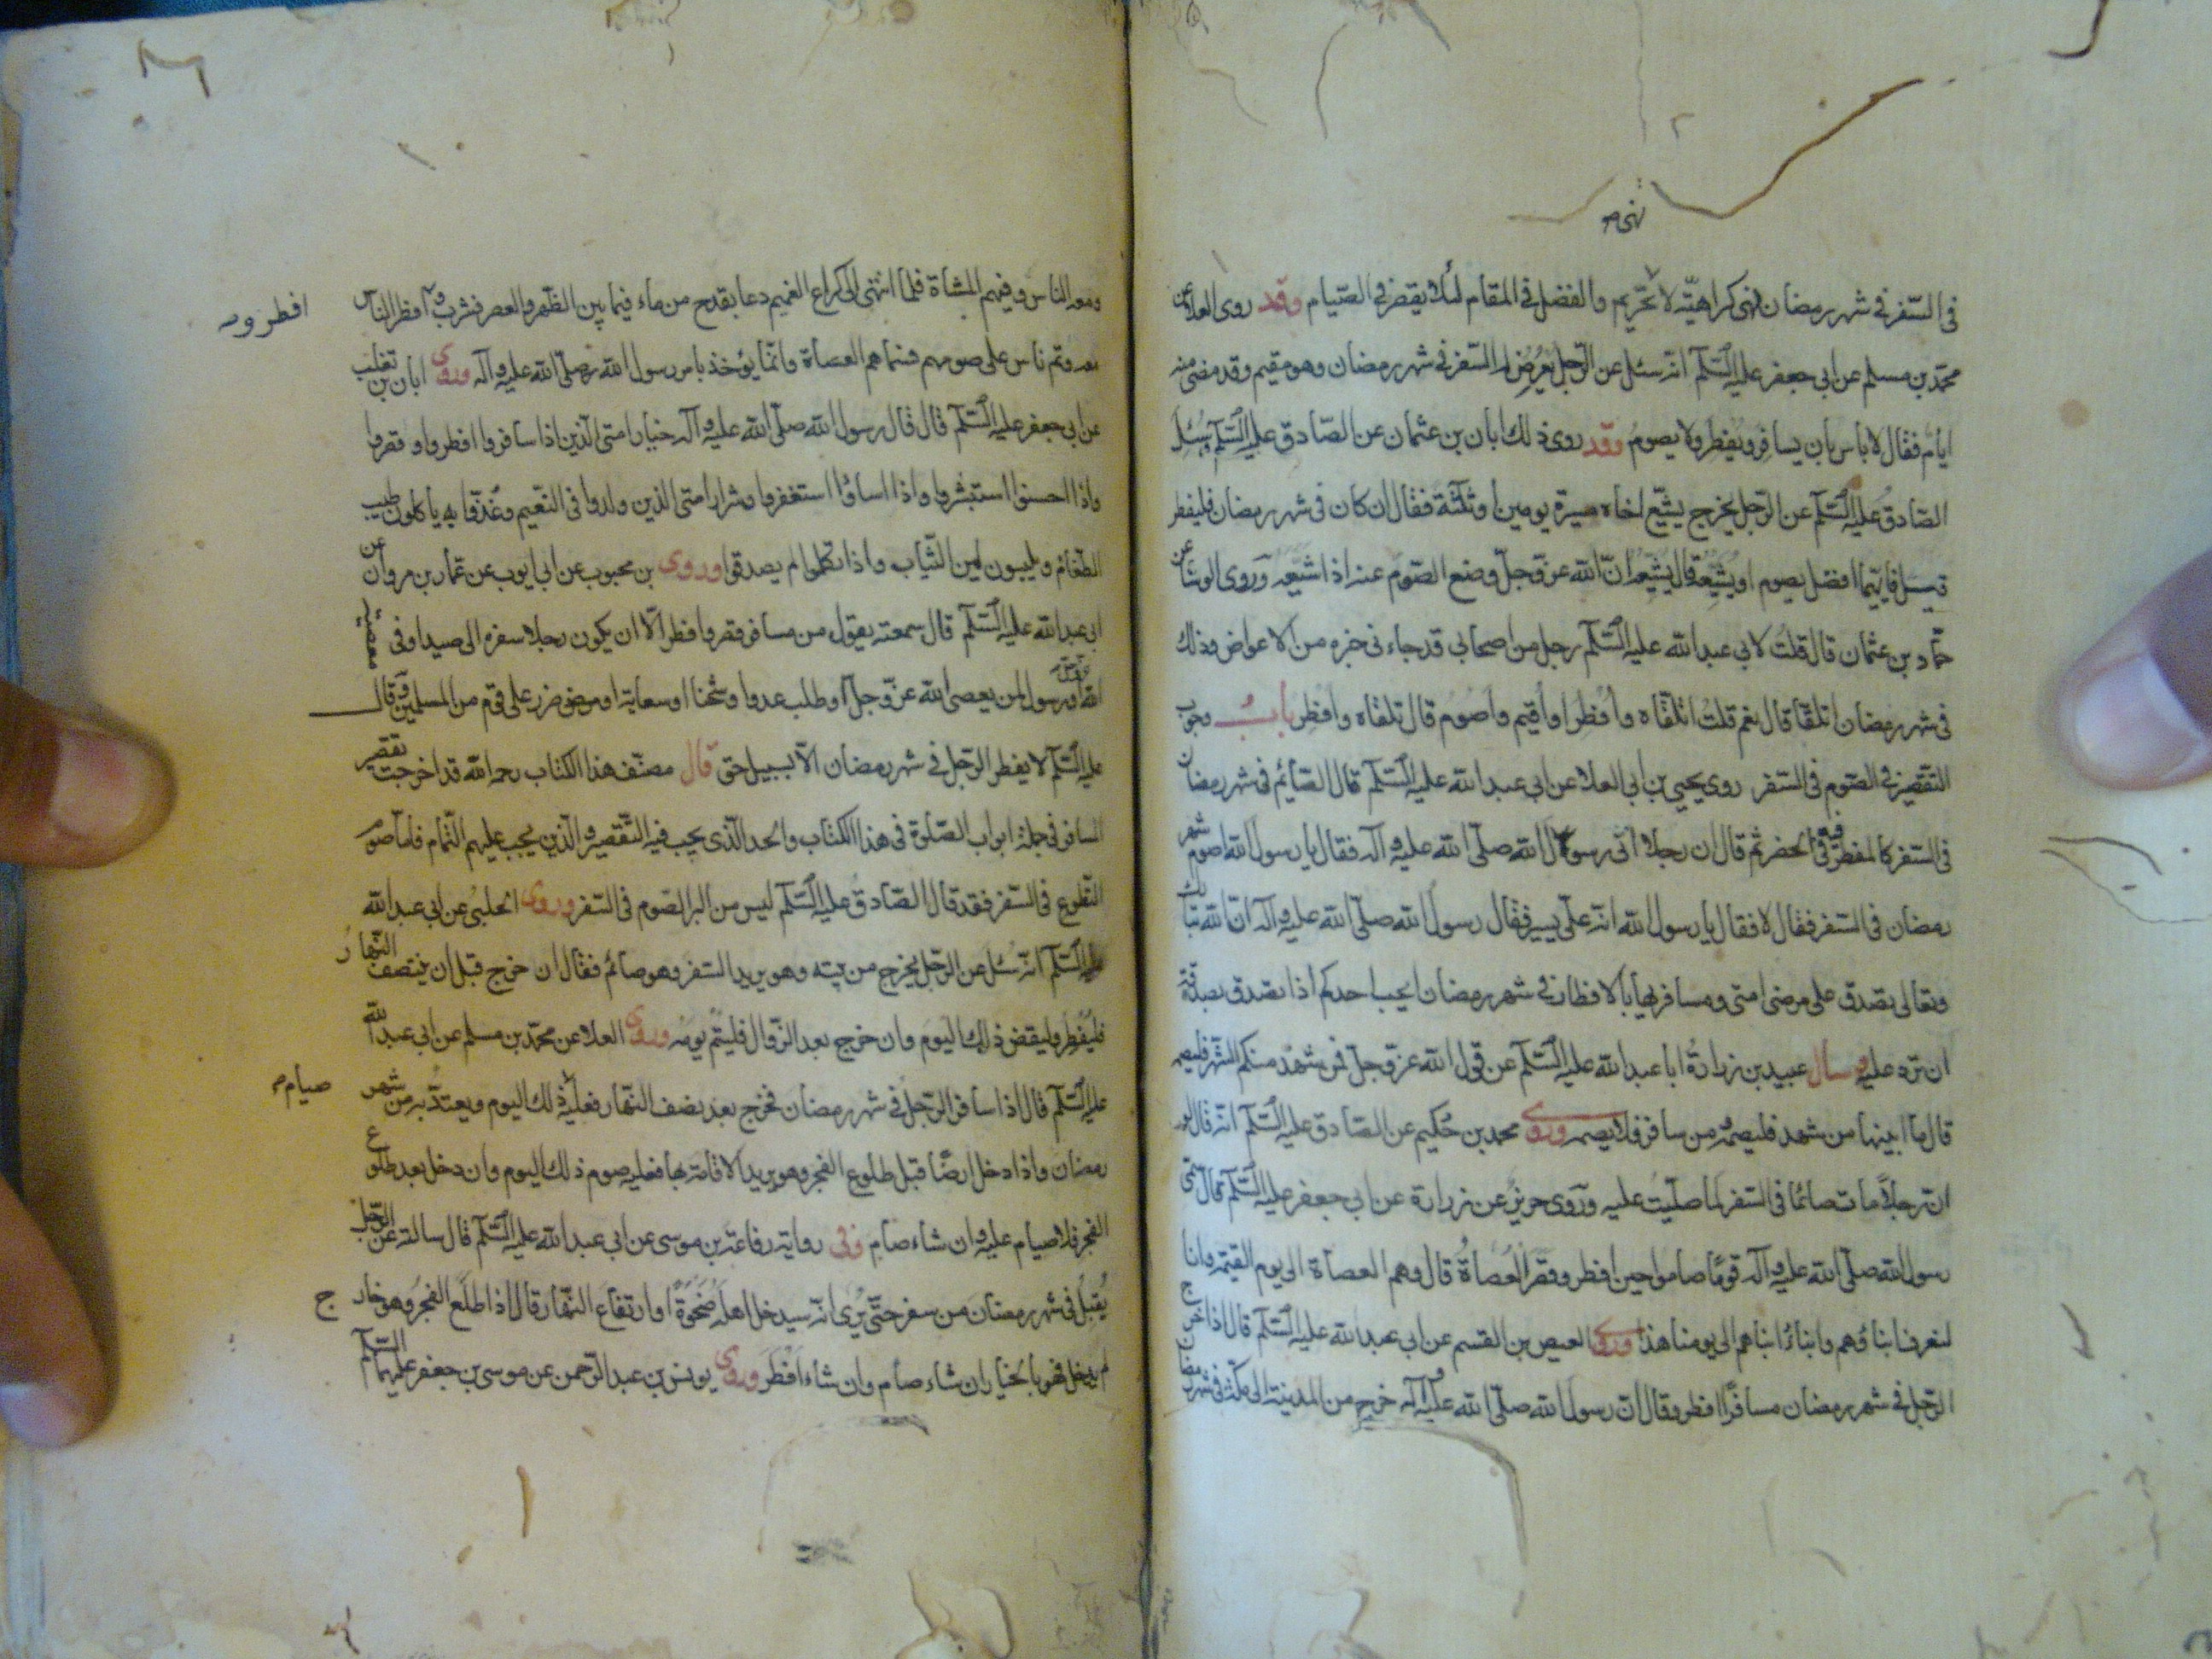 نهی م
فی السّفر فی شهر رمضان نهی کراهیّة لا تحریم والفضل فی المقام لئلا یقصر فی الصیام وقد روی العلا عن
محمّد بن مسلم عن ابی جعفر علیه السّلم انه سئل عن الرّجل یعرض له السّفر فی شهر رمضان وهو مقیم وقد مضی منه
ایام فقال لا باس بان یسافر ویفطر ولا یصوم وقد روی ذلك ابان بن عثمان عن الصّادق علیه السّلم وسئل
الصّادق علیه السّلم عن الرّجل یخرج یشیّع اخاه مسیرة یومین او ثلثة فقال ان کان فی شهر رمضان فلیفطر
فسئل فایهما افضل یصوم او یشیّعه قال یشیّعه انّ الله عزّ وجلّ وضع الصّوم عنه اذا شیّعه وروی الوشّا عن
حمّاد بن عثمان قال قلت لابی عبد الله علیه السّلم رجل من اصحابی قد جاء فی خبره من الاعواض وذلك
فی شهر رمضان اتلقّاه قال نعم قلت اتلقّاه وافطر او اقیم واصوم قال تلقّاه وافطر باب وجوب
التقصیر فی الصّوم فی السّفر روی یحیی بن ابی العلا عن ابی عبد الله علیه السّلم قال الصّایم فی شهر رمضان
فی السّفر کالمفطر فیه فی الحضر ثم قال ان رجلا اتی رسول الله صلّی الله علیه وآله فقال یا رسول الله اصوم شهر
رمضان فی السّفر فقال لا فقال یا رسول الله انّه علیّ یسیر فقال رسول الله صلّی الله علیه وآله انّ الله تبارك
وتعالی تصدق علی مرضی امتی ومسافریها بالافطار فی شهر رمضان ایحب احدکم اذا تصدق بصدقة
ان ترد علیه وسأل عبید بن زرارة ابا عبد الله علیه السّلم عن قول الله عزّ وجلّ فمن شهد منکم الشّهر فلیصمه
قال ما ابینها من شهد فلیصمه ومن سافر فلا یصمه وروی محمد بن حکیم عن الصّادق علیه السّلم انّه قال لو
ان رجلاً مات صائما فی السّفر لما صلّیت علیه وروی حریز عن زرارة عن ابی جعفر علیه السّلم قال سمّی
رسول الله صلّی الله علیه وآله قومًا صاموا حین افطر وقصّر العصاة قال وهم العصاة الی یوم القیمة وانا
لنعرف ابناؤهم وابناء ابناءهم الی یومنا هذا وروی العیص بن القسم عن ابی عبد الله علیه السّلم قال اذا خرج
الرّجل فی شهر رمضان مسافرًا افطر وقال انّ رسول الله صلّی الله علیه وآله خرج من المدینة الی مکّة فی شهر رمضان
ومعه الناس وفیهم المشاة فلمّا انتهی الی کراع الغمیم دعا بقدح من ماء فیما بین الظّهر والعصر فشرب وافطر النّاس
افطر وم
معه وتم ناس علی صومهم فسمّاهم العصاة وانّما یؤخذ بامر رسول الله صلّی الله علیه وآله وروی ابان بن تغلب
عن ابی جعفر علیه السّلم قال قال رسول الله صلّی الله علیه وآله خیار امتی الّذین اذا سافروا افطروا وقصروا
واذا احسنوا استبشروا واذا اساؤا استغفروا وشرار امتی الذین ولدوا فی النّعیم وغذّوا به یأکلون طیب
الطّعام ویلبسون لین الثّیاب واذا تکلّموا لم یصدقوا وروی بن محبوب عن ابی ایوب عن عمّار بن مروان عن
ابی عبد الله علیه السّلم قال سمعته یقول من سافر قصر وافطر الّا ان یکون رجلا سفره الی صید او فی معصیة
الله او رسول لمن یعصی الله عزّ وجلّ او طلب عدو او شحنا او سعایة او ضرر علی قوم من المسلمین وقال
علیه السّلم لا یفطر الرّجل فی شهر رمضان الّا بسبیل حق قال مصنّف هذا الکتاب رحمه الله قد اخرجت تقصیر
المسافر فی جملة ابواب الصّلوة فی هذا الکتاب والحد الّذی یجب فیه التّقصیر والّذین یجب علیهم التّمام فاما صوم
التّطوع فی السّفر فقد قال الصّادق علیه السّلم لیس من البر الصّوم فی السّفر وروی الحلبی عن ابی عبد الله
علیه السّلم انّه سئل عن الرّجل یخرج من بیته وهو یرید السّفر وهو صائم فقال ان خرج قبل ان ینتصف النّهار
فلیفطر ولیقض ذلك الیوم وان خرج بعد الزّوال فلیتم یومه وروی العلا عن محمّد بن مسلم عن ابی عبد الله
علیه السّلم قال اذا سافر الرّجل فی شهر رمضان فخرج بعد نصف النّهار فعلیه ذلك الیوم ویعتدّ به من شهر
صیام م
رمضان واذا دخل ارضًا قبل طلوع الفجر وهو یرید الاقامة بها فعلیه صوم ذلك الیوم وان دخل بعد طلوع
الفجر فلا صیام علیه وان شاء صام وفی روایة رفاعة بن موسی عن ابی عبد الله علیه السّلم قال سالته عن الرّجل
یقبل فی شهر رمضان من سفر حتّی یری انّه سیدخل اهله ضحوة او ارتفاع النّهار قال اذا طلع الفجر وهو خارج
لم یدخل فهو بالخیار ان شاء صام وان شاء افطر وروی یونس بن عبد الرّحمن عن موسی بن جعفر علیهما السّلم